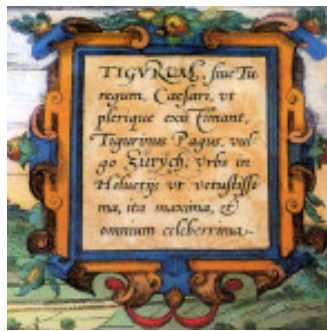 TIGVRVM, siue Tu
regum, Caesare, vt
plerique existimant,
Tigurinus Pagus, vul-
go Zurych, Vrbs in
Heluetijs vt vetustissi
ma, ita maxima, et
omnium celeberrima.